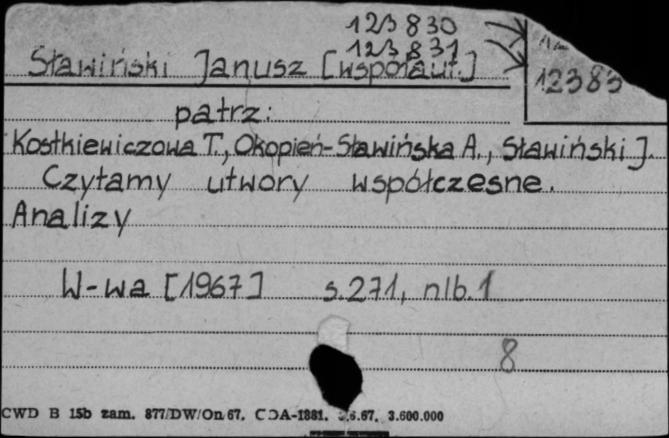 123830
123831
Sławiński Janusz [współaut.]
12383
patrz:
Kostkiewiczowa T., Okopień-Sławińska A., Sławiński J.
Czytamy utwory współczesne.
Analizy
W-wa [1967] s.271, nlb.1
8
CWD B 15b zam. 877/DW/On 67. CDA-1881. .6.67. 3.600.000